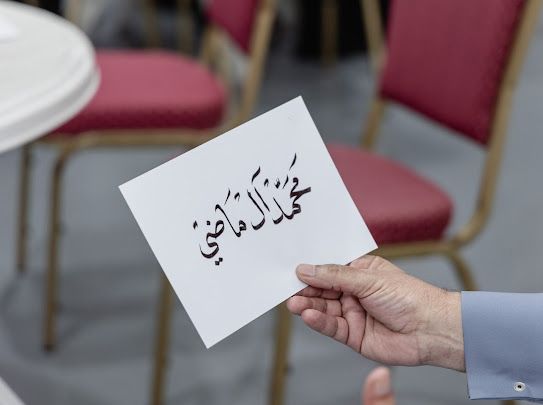 محمد آل ماضي